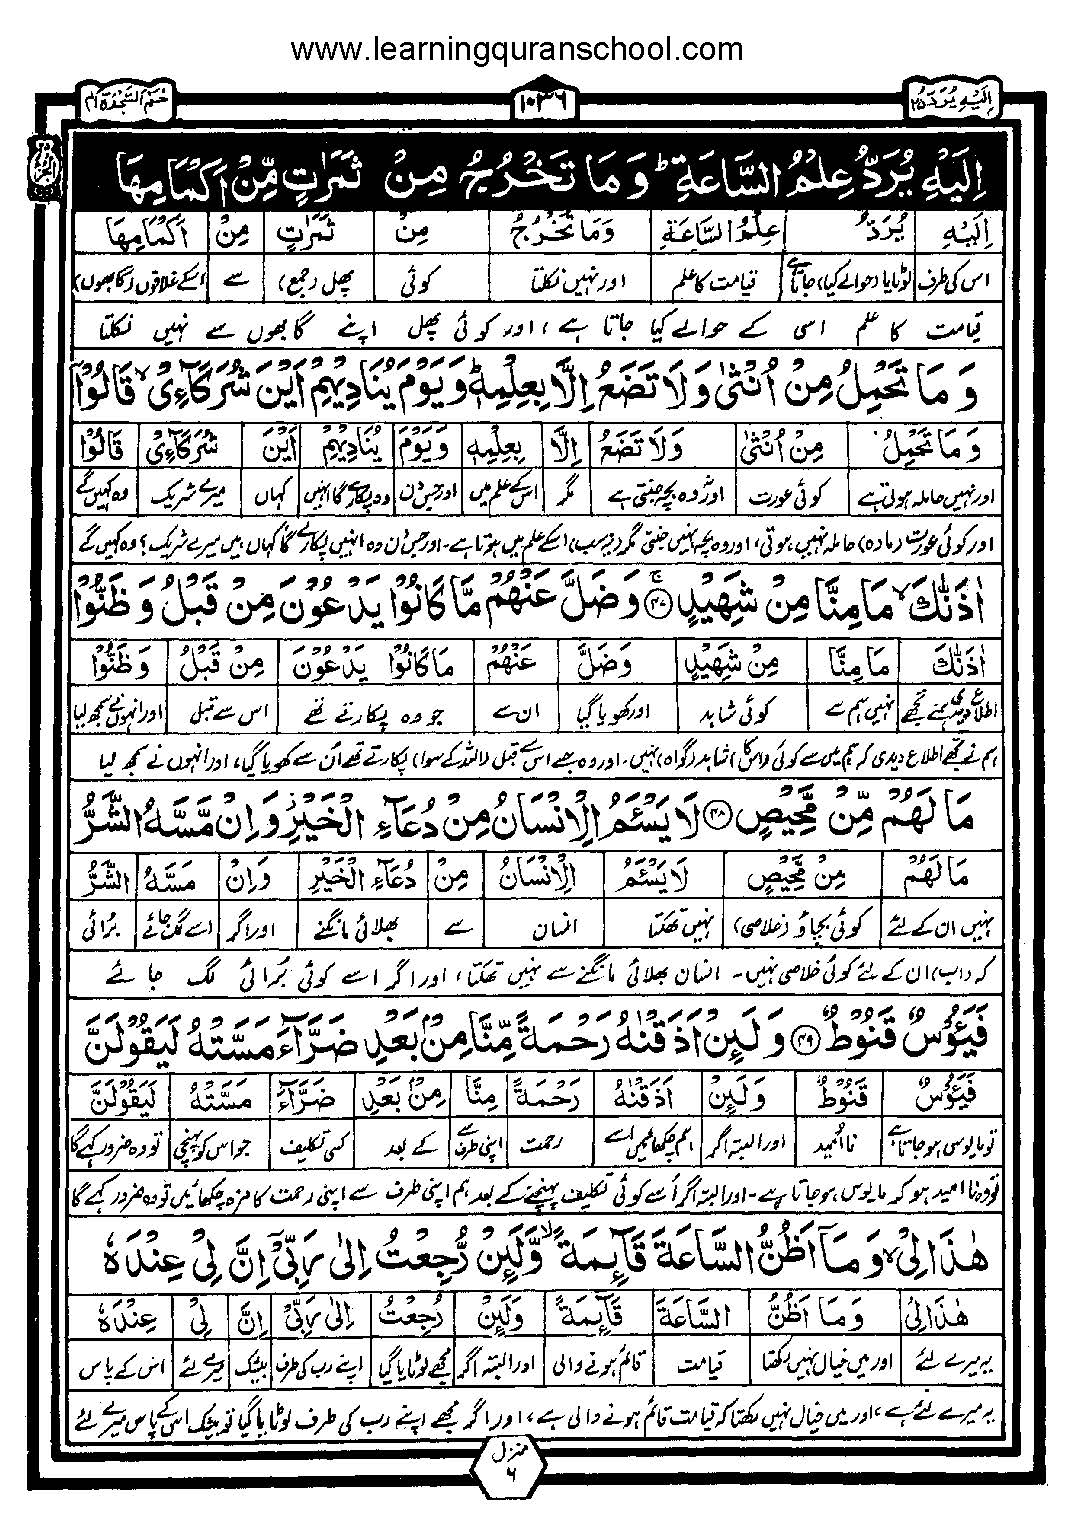 www.learningquranschool.com
اِلَیْهِ یُرَدُّ ۲۵
۱۰۳۶
حٰمٓ السَّجْدَة ۴۱
اِلَیْهِ یُرَدُّ عِلْمُ السَّاعَةِ ؕ وَ مَا تَخْرُجُ مِنْ ثَمَرٰتٍ مِّنْ اَكْمَامِهَا
اِلَیْهِ یُرَدُّ عِلْمُ السَّاعَةِ وَمَا تَخْرُجُ مِنْ ثَمَرٰتٍ مِنْ اَكْمَامِهَا
اس کی طرف لوٹایا (حوالے کیا) جاتا ہے قیامت کا علم اور نہیں نکلتا کوئی پھل (جمع) سے اسکے غلافوں (گابھوں)
قیامت کا علم اسی کے حوالے کیا جاتا ہے، اور کوئی پھل اپنے گابھوں سے نہیں نکلتا
وَ مَا تَحْمِلُ مِنْ اُنْثٰى وَلَا تَضَعُ اِلَّا بِعِلْمِهٖ ؕ وَ یَوْمَ یُنَادِیْهِمْ اَیْنَ شُرَكَآءِیْ ۙ قَالُوْۤا
وَ مَا تَحْمِلُ مِنْ اُنْثٰى وَلَا تَضَعُ اِلَّا بِعِلْمِهٖ وَ یَوْمَ یُنَادِیْهِمْ اَیْنَ شُرَكَآءِیْ قَالُوْۤا
اور نہیں حاملہ ہوتی ہے کوئی عورت اور نہ وہ بچہ جنتی ہے مگر اس کے علم میں اور جس دن وہ پکارے گا انہیں کہاں میرے شریک وہ کہیں گے
اور کوئی عورت (مادہ) حاملہ نہیں ہوتی، اور وہ بچہ نہیں جنتی مگر (یہ سب) اسکے علم میں ہوتا ہے۔ اور جس دن وہ انہیں پکارے گا کہاں ہیں میرے شریک؟ وہ کہیں گے
اٰذَنّٰكَ ۙ مَا مِنَّا مِنْ شَهِیْدٍ ۚ﴿۴۷﴾ وَ ضَلَّ عَنْهُمْ مَّا كَانُوْا یَدْعُوْنَ مِنْ قَبْلُ وَ ظَنُّوْا
اٰذَنّٰكَ مَا مِنَّا مِنْ شَهِیْدٍ وَ ضَلَّ عَنْهُمْ مَا كَانُوْا یَدْعُوْنَ مِنْ قَبْلُ وَ ظَنُّوْا
اطلاع دیدی ہم نے تجھے نہیں ہم سے کوئی شاہد اور کھویا گیا ان سے جو وہ پکارتے تھے اس سے قبل اور انہوں نے سمجھ لیا
ہم نے تجھے اطلاع دیدی کہ ہم میں سے کوئی (اس کا) شاہد (گواہ) نہیں۔ اور وہ جسے اس سے قبل (اللہ کے سوا) پکارتے تھے ان سے کھویا گیا، اور انہوں نے سمجھ لیا
مَا لَهُمْ مِّنْ مَّحِیْصٍ ﴿۴۸﴾ لَا یَسْـَٔمُ الْاِنْسَانُ مِنْ دُعَآءِ الْخَیْرِ ؗ وَ اِنْ مَّسَّهُ الشَّرُّ
مَا لَهُمْ مِنْ مَّحِیْصٍ لَا یَسْـَٔمُ الْاِنْسَانُ مِنْ دُعَآءِ الْخَیْرِ وَ اِنْ مَسَّهُ الشَّرُّ
نہیں ان کے لئے کوئی بچاؤ (خلاصی) نہیں تھکتا انسان سے بھلائی مانگنے اور اگر اسے لگ جائے برائی
کہ (اب) ان کے لئے کوئی خلاصی نہیں۔ انسان بھلائی مانگنے سے نہیں تھکتا، اور اگر اسے کوئی برائی لگ جائے
فَیَـُٔوْسٌ قَنُوْطٌ ﴿۴۹﴾ وَ لَىِٕنْ اَذَقْنٰهُ رَحْمَةً مِّنَّا مِنْۢ بَعْدِ ضَرَّآءَ مَسَّتْهُ لَیَقُوْلَنَّ
فَیَـُٔوْسٌ قَنُوْطٌ وَ لَىِٕنْ اَذَقْنٰهُ رَحْمَةً مِنَّا مِنْۢ بَعْدِ ضَرَّآءَ مَسَّتْهُ لَیَقُوْلَنَّ
تو مایوس ہو جاتا ہے نا امید اور البتہ اگر ہم چکھائیں اسے رحمت اپنی طرف سے کے بعد کسی تکلیف جو اس کو پہنچی تو وہ ضرور کہے گا
تو وہ نا امید ہو کر مایوس ہو جاتا ہے۔ اور البتہ اگر اُسے کوئی تکلیف پہنچنے کے بعد ہم اپنی طرف سے اپنی رحمت کا مزہ چکھائیں تو وہ ضرور کہے گا
هٰذَا لِیْ ۙ وَ مَاۤ اَظُنُّ السَّاعَةَ قَآىِٕمَةً ۙ وَّ لَىِٕنْ رُّجِعْتُ اِلٰى رَبِّیْۤ اِنَّ لِیْ عِنْدَهٗ
هٰذَا لِیْ وَ مَاۤ اَظُنُّ السَّاعَةَ قَآىِٕمَةً وَ لَىِٕنْ رُجِعْتُ اِلٰى رَبِّیْۤ اِنَّ لِیْ عِنْدَهٗ
یہ میرے لئے اور میں خیال نہیں رکھتا قیامت قائم ہونے والی اور البتہ اگر مجھے لوٹایا گیا اپنے رب کی طرف بیشک میرے لئے اس کے پاس
یہ میرے لئے ہے، اور میں خیال نہیں رکھتا کہ قیامت قائم ہونے والی ہے، اور اگر مجھے اپنے رب کی طرف لوٹایا گیا تو بیشک اس کے پاس میرے لئے
منزل
۶